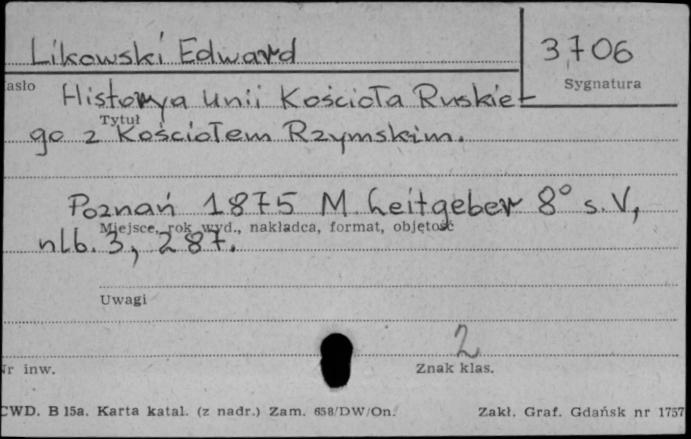 Likowski Edward
3706
asło
Sygnatura
Historya Unii Kościoła Ruskie-
Tytuł
go z Kościołem Rzymskim.
Poznań 1875 M. Leitgeber 8° s. V,
Miejsce, rok wyd., nakładca, format, objętość
nlb. 3, 287.
Uwagi
2
Nr inw.
Znak klas.
CWD. B 15a. Karta katal. (z nadr.) Zam. 658/DW/On.
Zakł. Graf. Gdańsk nr 1757